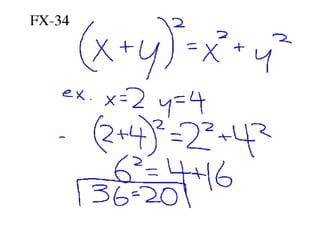 FX-34
(x+y)² = x² + y²
ex. x=2 y=4
- (2+4)² = 2² + 4²
6² = 4+16
36=20